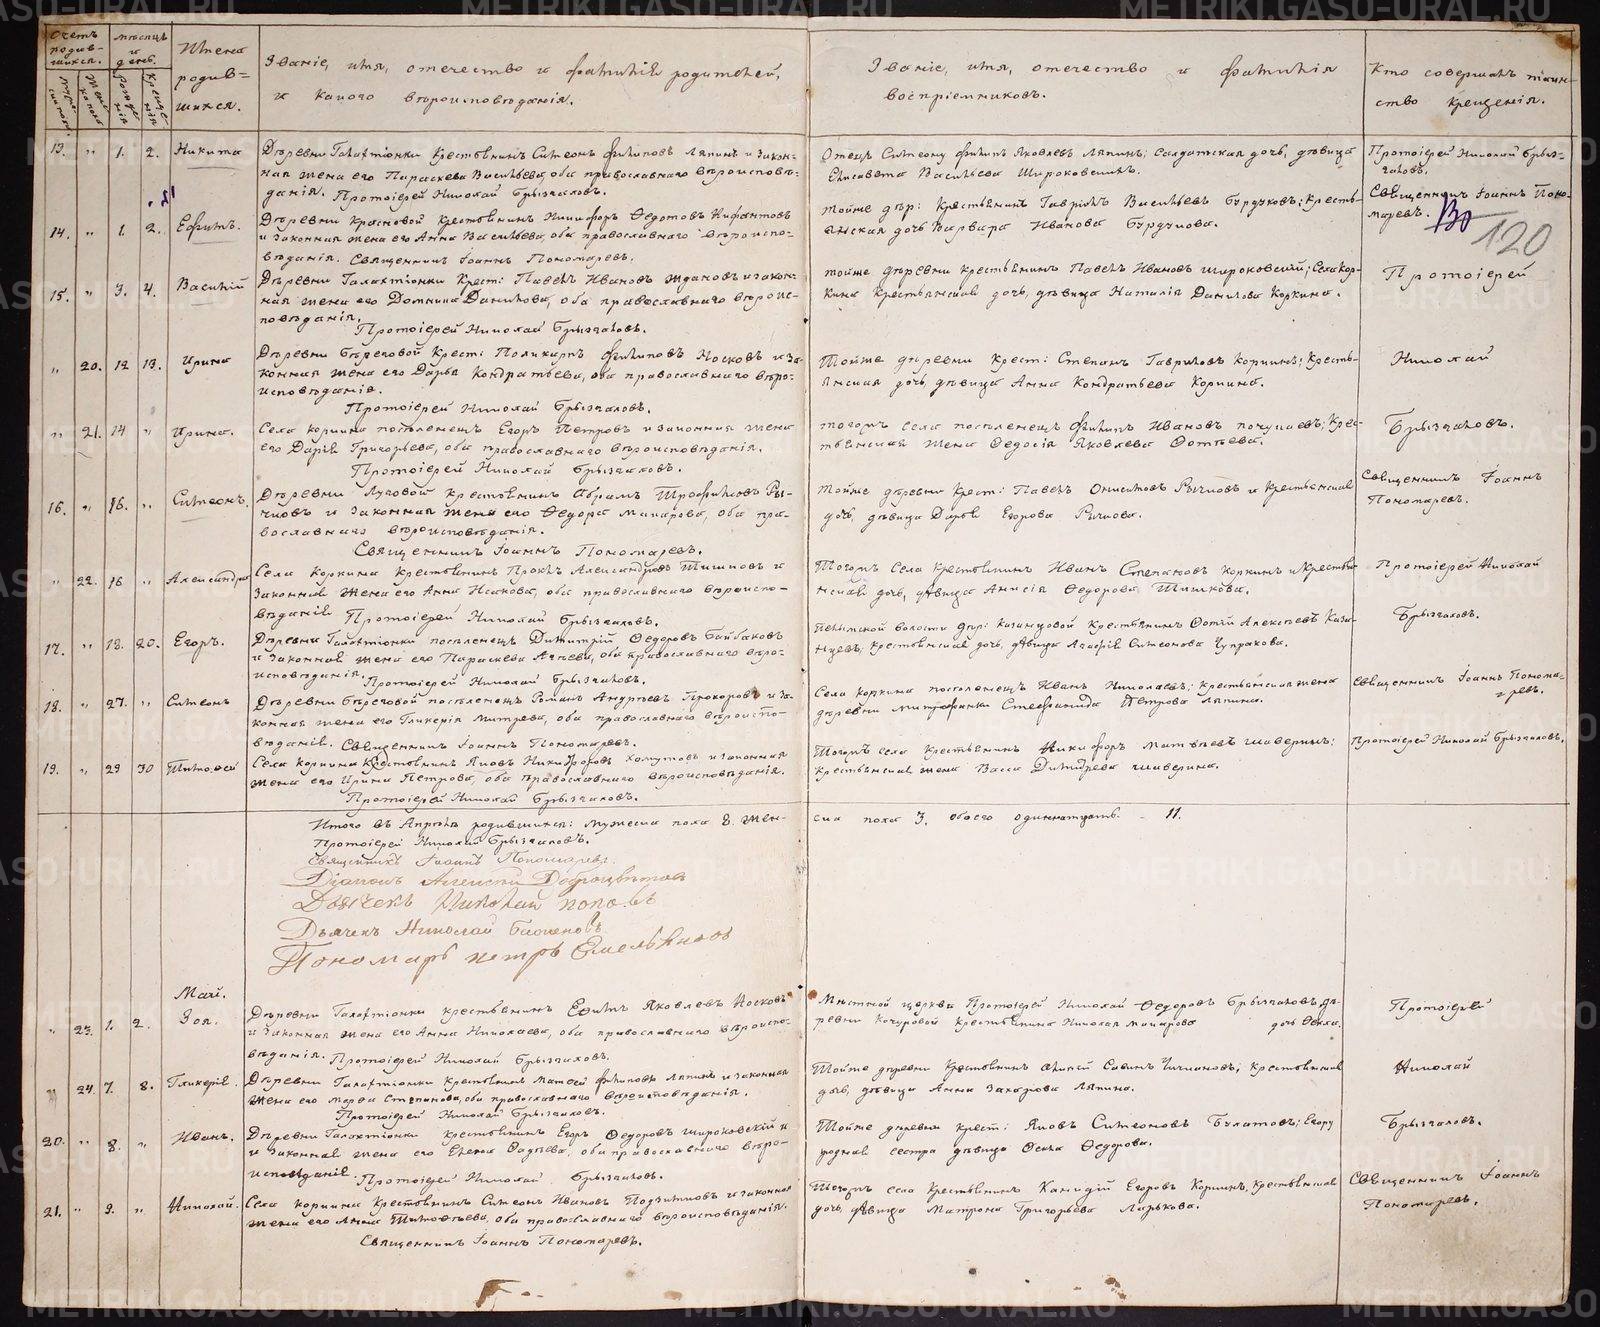 METRIKI.GASO-URAL.RU
Счетъ родив-шихся.
Мѣсяцъ и день.
Имена родив-шихся.
Званіе, имя, отечество и фамилія родителей,
и какого вѣроисповѣданія.
Званіе, имя, отечество и фамилія
воспріемниковъ.
Кто совершалъ таин-
ство крещенія.
13. " 1. 2. Никита
Деревни Галактіонки крестьянинъ Симеонъ Филиповъ Ляпинъ и закон-
ная жена его Параскева Васильева, оба православнаго вѣроисповѣ-
данія. Протоіерей Николай Брызгаловъ.
Отецъ Симеону Филипъ Яковлевъ Ляпинъ; солдатская дочь, дѣвица
Елисавета Васильева Широковскихъ.
Протоіерей Николай Брыз-
галовъ.
14. " 1. 2. Ефимъ.
Деревни Красновой крестьянинъ Никифоръ Федотовъ
и законная жена его Анна Васильева, оба православнаго вѣроиспо-
вѣданія. Священникъ Іоаннъ Пономаревъ.
тойже дер: крестьянинъ Гавріилъ Васильевъ Бурдуковъ; кресть-
янская дочь Варвара Иванова Бурдукова.
Священникъ Іоаннъ Поно-
маревъ.
130
120
15. " 3. 4. Василій
Деревни Галактіонки крест: Павелъ Ивановъ Ждановъ и закон-
ная жена его Домника Данилова, оба православнаго вѣроис-
повѣданія.
Протоіерей Николай Брызгаловъ.
тойже деревни крестьянинъ Павелъ Ивановъ Широковскій; села Кор-
кина крестьянская дочь, дѣвица Наталія Данилова Коркина.
Протоіерей
" 20. 12 13. Ирина
Деревни Береговой крест: Поликарпъ Филиповъ Носковъ и за-
конная жена его Дарья Кондратьева, оба православнаго вѣро-
исповѣданія.
Протоіерей Николай Брызгаловъ.
Тойже деревни крест: Степанъ Гавриловъ Коркинъ; кресть-
янская дочь, дѣвица Анна Кондратьева Коркина.
Николай
" 21. 14 " Ирина.
Села Коркина поселенецъ Егоръ Петровъ и законная жена
его Дарія Григорьева, оба православнаго вѣроисповѣданія.
Протоіерей Николай Брызгаловъ.
тогожъ села поселенецъ Филипъ Ивановъ; крес-
тьянская жена Федосія Яковлева Фотѣева.
Брызгаловъ.
16. " 16. " Симеонъ.
Деревни Луговой крестьянинъ Абрамъ Трофимовъ Ры-
чковъ и законная жена его Федора Макарова, оба пра-
вославнаго вѣроисповѣданія.
Священникъ Іоаннъ Пономаревъ.
тойже деревни крест: Павелъ Онисимовъ Рычковъ и крестьянская
дочь, дѣвица Дарья Егорова Рычкова.
Священникъ Іоаннъ
Пономаревъ.
" 22. 16 " Александра
Села Коркина крестьянинъ Проклъ Александровъ Тишковъ и
законная жена его Анна Исакова, оба православнаго вѣроиспо-
вѣданія. Протоіерей Николай Брызгаловъ.
Тогожъ села крестьянинъ Иванъ Степановъ Коркинъ и крестья-
нская дочь, дѣвица Анисія Федорова Тишкова.
Протоіерей Николай
Брызгаловъ.
17. " 18. 20. Егоръ.
Деревни Галактіонки поселенецъ Димитрій Федоровъ Байбаковъ
и законная жена его Параскева, оба православнаго вѣро-
исповѣданія. Протоіерей Николай Брызгаловъ.
волости дер: Казанцовой крестьянинъ Фотій Алексѣевъ Каза-
нцевъ; крестьянская дочь, дѣвица Агафія Симеонова Чупракова.
18. " 27. " Симеонъ
Деревни Береговой поселенецъ Романъ Андреевъ Прохоровъ и за-
конная жена его Гликерія Митрева, оба православнаго вѣроиспо-
вѣданія. Священникъ Іоаннъ Пономаревъ.
Села Коркина поселенецъ Иванъ Николаевъ; крестьянская жена
деревни Митрофанки Стефанида Петрова Ляпина.
Священникъ Іоаннъ Понома-
ревъ.
19. " 29 30 Тимофей
Села Коркина крестьянинъ Яковъ Никифоровъ Хомутовъ и законная
жена его Ирина Петрова, оба православнаго вѣроисповѣданія.
Протоіерей Николай Брызгаловъ.
Тогожъ села крестьянинъ Никифоръ Матвѣевъ Шаверинъ;
крестьянская жена Васса Димитрева Шаверина.
Протоіерей Николай Брызгаловъ.
Итого въ Апрѣлѣ родившихся: мужеска пола 8. жен-
ска пола 3. обоего одиннатцать. - 11.
Протоіерей Николай Брызгаловъ.
Священникъ Іоаннъ Пономаревъ.
Діаконъ Алексей Доброцвѣтовъ
Дьячекъ Николай Поповъ
Дьячекъ Николай Баженовъ
Пономарь Петръ Емельяновъ
Май.
" 23. 1. 2. Зоя.
Деревни Галактіонки крестьянинъ Ефимъ Яковлевъ Носковъ
и законная жена его Анна Николаева, оба православнаго вѣроиспо-
вѣданія. Протоіерей Николай Брызгаловъ.
Мѣстной церкви Протоіерей Николай Федоровъ Брызгаловъ, де-
ревни Кочуровой крестьянина Николая Макарова дочь Фекла.
Протоіерей
" 24. 7. 8. Гликерія.
Деревни Галактіонки крестьянинъ Матфей Филиповъ Ляпинъ и законная
жена его Марфа Степанова, оба православнаго вѣроисповѣданія.
Протоіерей Николай Брызгаловъ.
Тойже деревни крестьянинъ Савинъ; крестьянская
дочь, дѣвица Анна Захарова Ляпина.
Николай
20. " 8. " Иванъ.
Деревни Галактіонки крестьянинъ Егоръ Федоровъ Широковскій и
и законная жена его Елена, оба православнаго вѣро-
исповѣданія. Протоіерей Николай Брызгаловъ.
Тойже деревни крест: Яковъ Симеоновъ Булатовъ; Егору
родная сестра дѣвица Фекла Федорова.
Брызгаловъ.
21. " 9. " Николай.
Села Коркина крестьянинъ Симеонъ Ивановъ и законная
жена его Анна Тимофѣева, оба православнаго вѣроисповѣданія.
Священникъ Іоаннъ Пономаревъ.
Тогожъ села крестьянинъ Егоровъ Коркинъ, крестьянская
дочь, дѣвица Матрона Григорьева Ларькова.
Священникъ Іоаннъ
Пономаревъ.